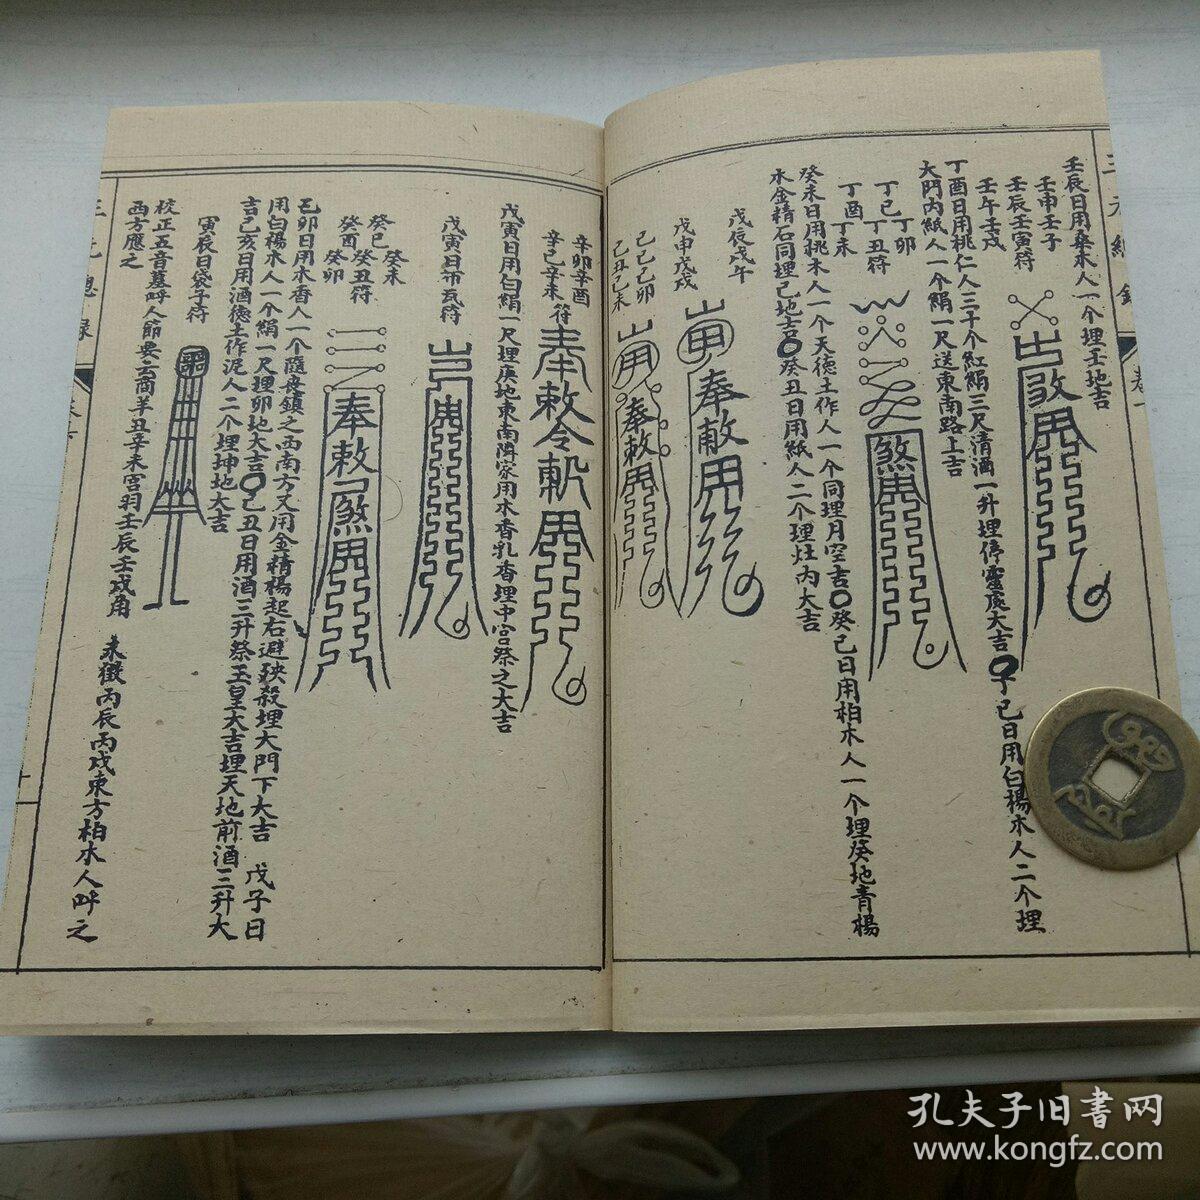 三元總錄
壬辰日用桑木人一个埋壬地吉
壬申壬子
壬辰壬寅符
壬午壬戌
丁酉日用桃仁人三千个紅絹三尺清酒一升埋停靈處大吉〇丁巳日用白楊木人二个埋
大門內紙人一个絹一尺送東南路上吉
丁卯
丁巳丁丑符
丁酉丁未
煞
癸未日用桃木人一个天德土作人一个同埋月空吉〇癸巳日用柏木人一个埋癸地青楊
木金精石同埋己地吉〇癸丑日用紙人二个埋灶內大吉
戊辰戊午
戊申戊戌
奉敕用
己己己卯
己丑己未
奉敕用
辛卯辛酉
辛巳辛未符
奉敕令
戊寅日用白絹一尺埋庚地東南隣家用水香乳香埋中宮祭之大吉
戊寅日布瓦符
癸未
癸巳癸丑符
癸酉癸卯
奉敕
煞
己卯日用木香人一个隨喪鎮之西南方又用金精楊起右避殃殺埋大門下大吉 戊子日
用白楊木人一个絹一尺埋卯地大吉〇乙丑日用酒三升祭玉皇大吉埋天地前酒三升大
吉己亥日用酒德土作泥人二个埋坤地大吉
寅辰日袋子符
校正五音墓呼人節要云商羊丑辛未宮羽壬辰壬戌角 未徵丙辰丙戌東方柏木人呼之
西方應之
三元總錄
孔夫子旧書网
www.kongfz.com